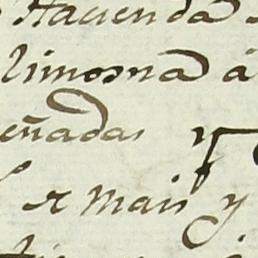 Hacienda
limosna á
eñadas y
r mais y